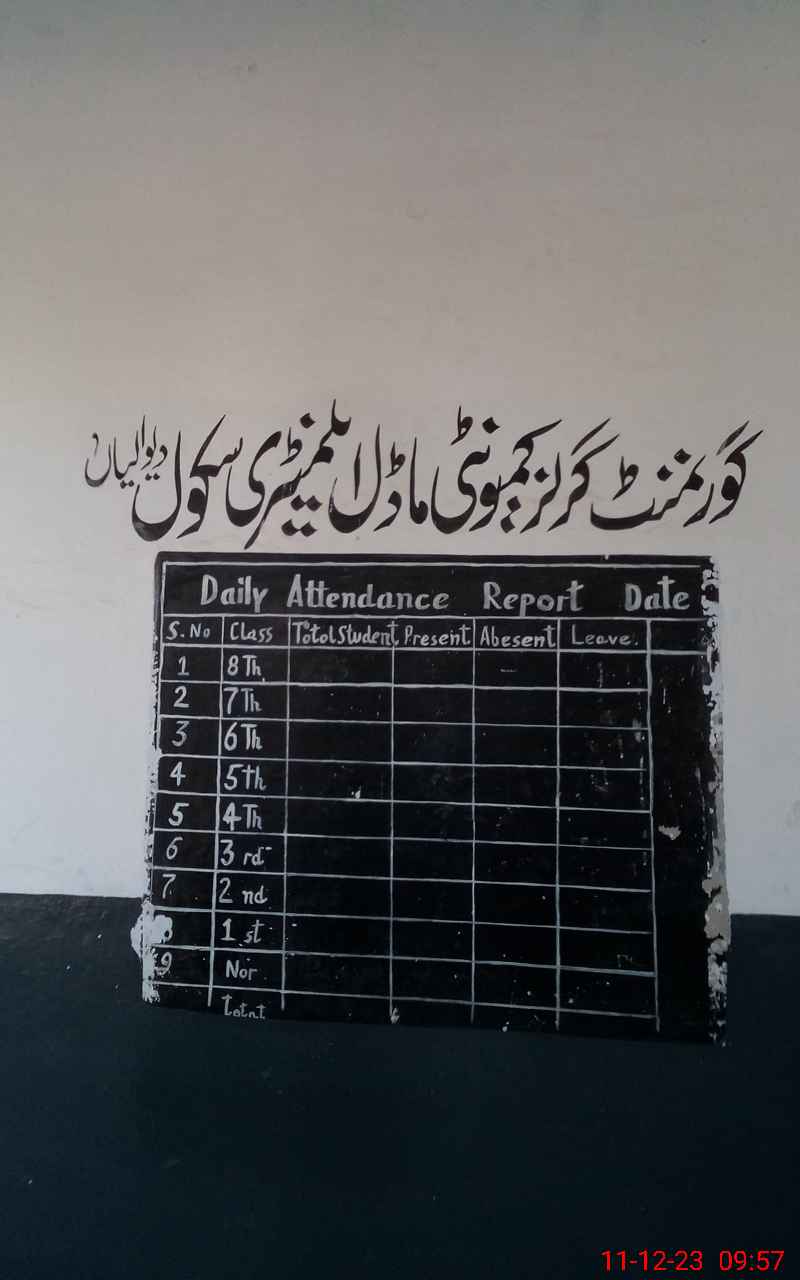 گورنمنٹ گرلز کمیونٹی ماڈل ایلمینٹری سکول دیوالیاں
Daily Attendance Report Date
S.No Class Totol Student Present Abesent Leave.
1 8Th
2 7Th
3 6Th
4 5th
5 4Th
6 3 rd
7 2 nd
8 1 st
9 Nor
Total
11-12-23 09:57